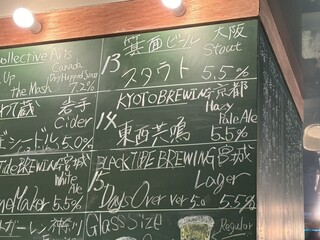 Collective Arts
Canada
Up
the Mash
Dry Hopped Sour
7.2%
13
箕面ビール 大阪
Stout
スタウト 5.5%
蔵 岩手
Cider
シードル 5.0%
14
KYOTO BREWING 京都
Hazy
Pale Ale
東西共鳴 5.5%
BREWING 宮城
White
Ale
Maker 5.5%
15
BLACK TIDE BREWING 宮城
Lager
Days Over ver 5.0 5.5%
ガーレン 神奈川
Glass Size
Regular